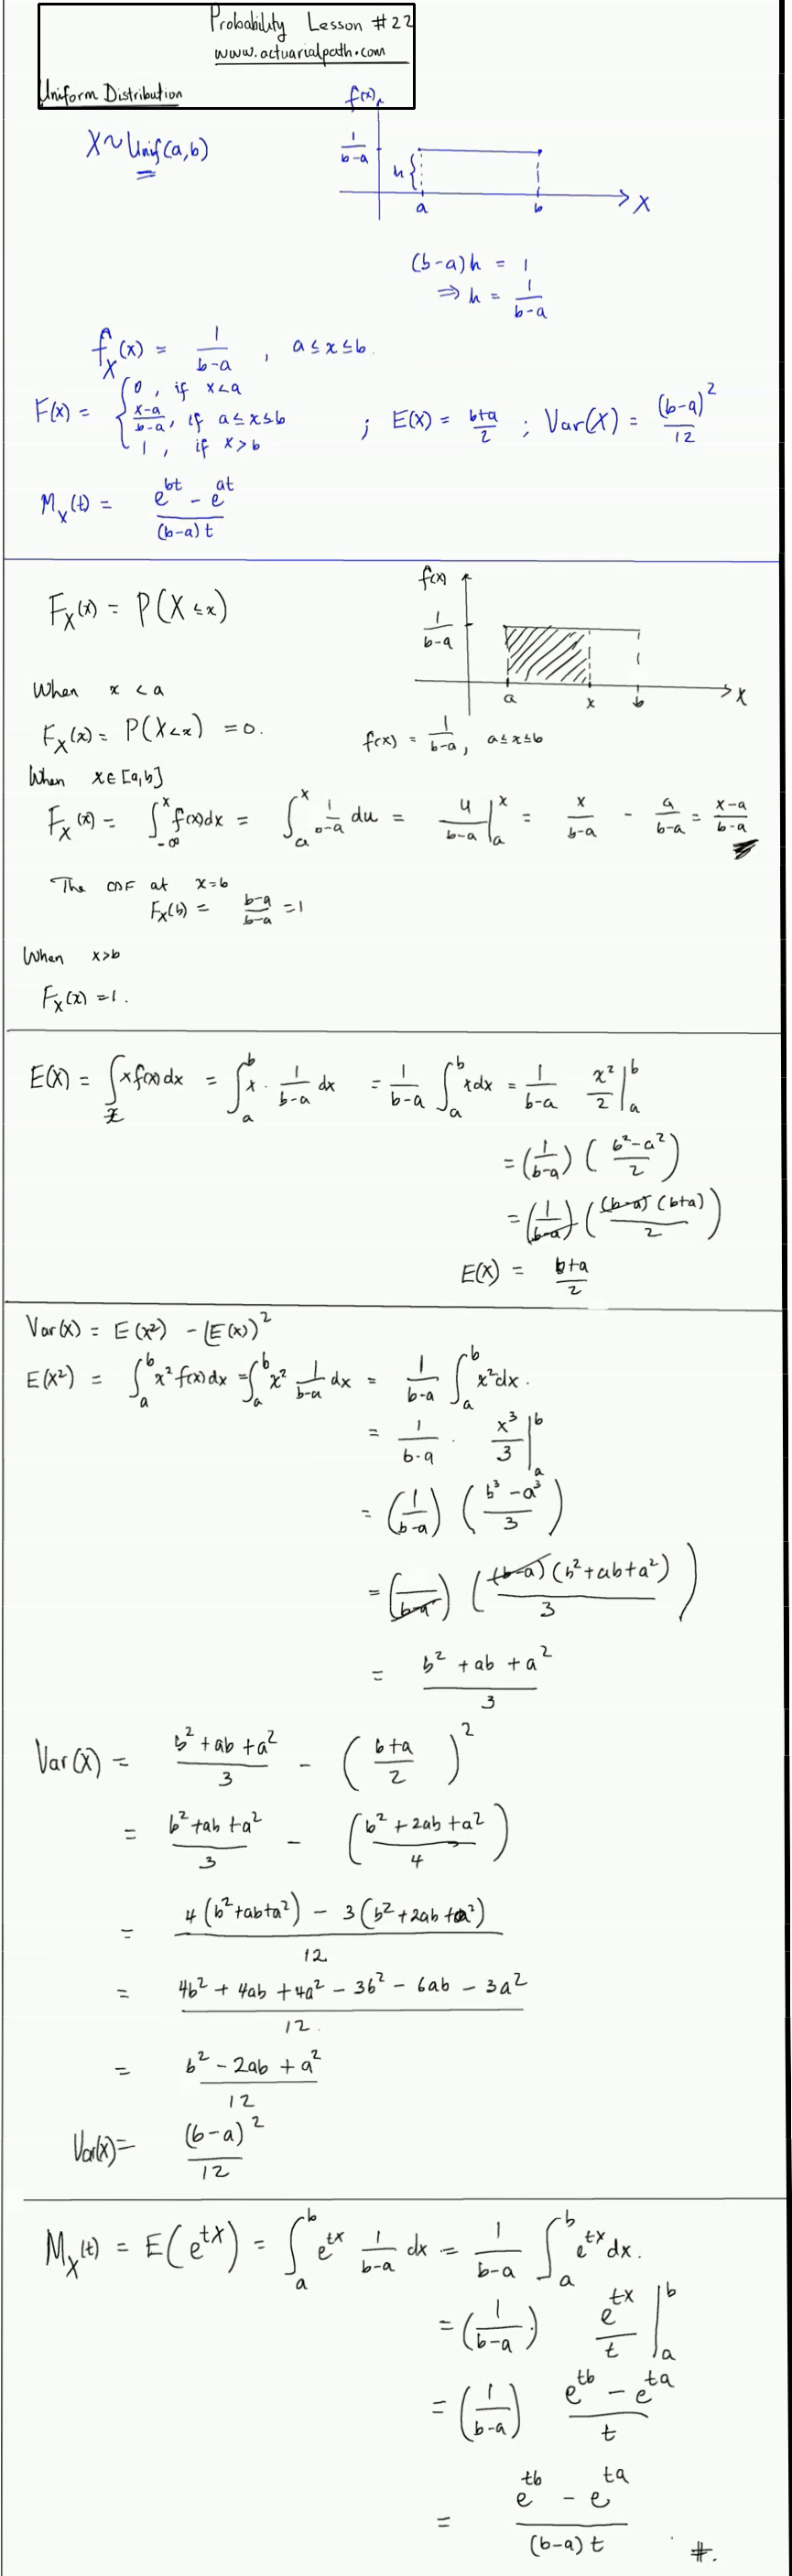 Probability Lesson #22
www.actuarialpath.com
Uniform Distribution
f(x)
X ~ Unif(a,b)
1/(b-a)
h{
a b X
(b-a)h = 1
⇒ h = 1/(b-a)
f_X(x) = 1/(b-a) , a ≤ x ≤ b.
F(x) = { 0 , if x<a
(x-a)/(b-a), if a ≤ x ≤ b ; E(X) = (b+a)/2 ; Var(X) = (b-a)²/12
1 , if x>b
M_X(t) = (e^{bt} - e^{at})/((b-a)t)
f(x)
F_X(x) = P(X ≤ x)
1/(b-a)
a x b X
When x < a
F_X(x) = P(X<x) = 0.
f(x) = 1/(b-a), a ≤ x ≤ b
When x∈[a,b]
F_X(x) = ∫_{-∞}^{x} f(x)dx = ∫_a^x 1/(b-a) du = u/(b-a) |_a^x = x/(b-a) - a/(b-a) = (x-a)/(b-a)
The CDF at x=b
F_X(b) = (b-a)/(b-a) = 1
When x>b
F_X(x) = 1.
E(X) = ∫_x x f(x) dx = ∫_a^b x · 1/(b-a) dx = 1/(b-a) ∫_a^b x dx = 1/(b-a) x²/2 |_a^b
= (1/(b-a)) ((b²-a²)/2)
= (1/(b-a)) ((b-a)(b+a)/2)
E(X) = (b+a)/2
Var(x) = E(x²) - (E(x))²
E(X²) = ∫_a^b x² f(x) dx = ∫_a^b x² 1/(b-a) dx = 1/(b-a) ∫_a^b x² dx.
= 1/(b-a) · x³/3 |_a^b
= (1/(b-a)) ((b³-a³)/3)
= ( /(b-a)) ((b-a)(b²+ab+a²)/3)
= (b² + ab + a²)/3
Var(X) = (b²+ab+a²)/3 - ((b+a)/2)²
= (b²+ab+a²)/3 - ((b²+2ab+a²)/4)
= (4(b²+ab+a²) - 3(b²+2ab+a²))/12
= (4b² + 4ab + 4a² - 3b² - 6ab - 3a²)/12.
= (b² - 2ab + a²)/12
Var(x) = (b-a)²/12
M_X(t) = E(e^{tX}) = ∫_a^b e^{tx} 1/(b-a) dx = 1/(b-a) ∫_a^b e^{tx} dx.
= (1/(b-a)) e^{tx}/t |_a^b
= (1/(b-a)) (e^{tb} - e^{ta})/t
= (e^{tb} - e^{ta})/((b-a)t) #.